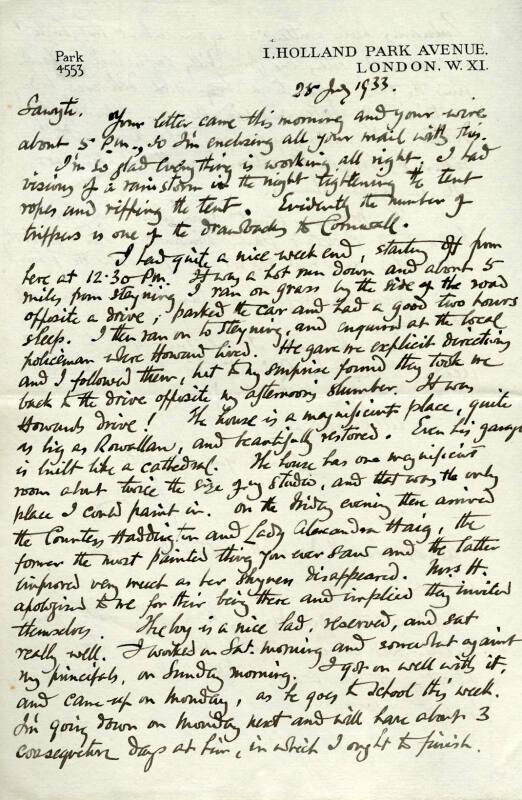 Park
4553
1, HOLLAND PARK AVENUE,
LONDON, W. XI.
25 July 1933.
Your letter came this morning and your wire
about 5 P.m., so I'm enclosing all your mail with this.
I'm so glad everything is working all right. I had
visions of a rainstorm in the night tightening the tent
ropes and ripping the tent. Evidently the number of
trippers is one of the drawbacks to Cornwall.
I had quite a nice week end, starting off from
here at 12.30 P.m. It was a hot run down and about 5
miles from Steyning I ran on grass by the side of the road
opposite a drive, parked the car and had a good two hours
sleep. I then ran on to Steyning, and enquired at the local
policeman where Howard lived. He gave me explicit directions
and I followed them, but to my surprise found they took me
back to the drive opposite my afternoon's slumber. It was
Howard's drive! The house is a magnificent place, quite
as big as Rowallan, and beautifully restored. Even his garage
is built like a cathedral. The house has one magnificent
room about twice the size of my studio, and that was the only
place I could paint in. On the Friday evening there arrived
the Countess Haddington and Lady Alexandra Haig, the
former the most painted thing you ever saw and the latter
improved very much as her shyness disappeared. Mrs H.
apologised to me for their being there and implied they invited
themselves. The boy is a nice lad, reserved, and sat
really well. I worked on Sat. morning and somewhat against
my principals, on Sunday morning. I got on well with it,
and came up on Monday, as he goes to school this week.
I'm going down on Monday next and will have about 3
consequitive days at him, in which I ought to finish.